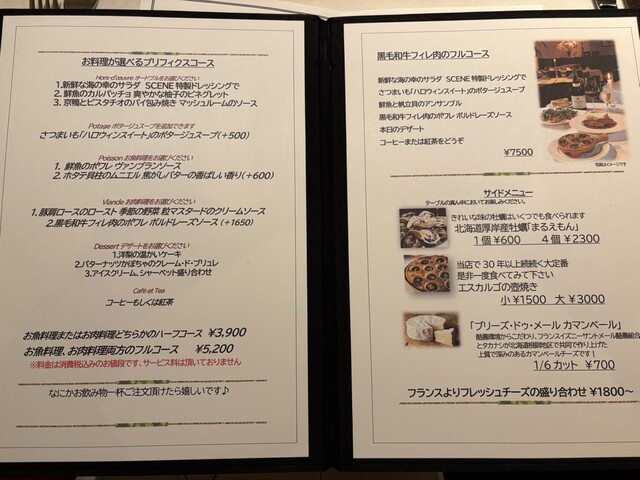 お料理が選べるプリフィクスコース
Hors-d'œuvre オードブルをお選びください
1.新鮮な海の幸のサラダ SCENE 特製ドレッシングで
2. 鮮魚のカルパッチョ 爽やかな柚子のビネグレット
3. 京鴨とピスタチオのパイ包み焼き マッシュルームのソース
Potage ポタージュスープを追加できます
さつまいも「ハロウィンスイート」のポタージュスープ(+500)
Poisson お魚料理をお選びください
1. 鮮魚のポワレ ヴァンブランソース
2. ホタテ貝柱のムニエル 焦がしバターの香ばしい香り(+600)
Viande お肉料理をお選びください
1. 豚肩ロースのロースト 季節の野菜 粒マスタードのクリームソース
2.黒毛和牛フィレ肉のポワレ ボルドレーズソース (+1650)
Dessert デザートをお選びください
1.洋梨の温かいケーキ
2.バターナッツかぼちゃのクレーム・ド・ブリュレ
3.アイスクリーム、シャーベット盛り合わせ
Café et Tea
コーヒーもしくは紅茶
お魚料理またはお肉料理どちらかのハーフコース ¥3,900
お魚料理、お肉料理両方のフルコース ¥5,200
※料金は消費税込みのお値段です、サービス料は頂いておりません
なにかお飲み物一杯ご注文頂けたら嬉しいです♪
黒毛和牛フィレ肉のフルコース
新鮮な海の幸のサラダ SCENE 特製ドレッシングで
さつまいも「ハロウィンスイート」のポタージュスープ
鮮魚と帆立貝のアンサンブル
黒毛和牛フィレ肉のポワレ ボルドレーズソース
本日のデザート
コーヒーまたは紅茶をどうぞ
¥7500
写真はイメージです
サイドメニュー
テーブルの真ん中においてお楽しみください。
きれいな味の牡蠣はいくつでも食べられます
北海道厚岸産牡蠣「まるえもん」
1個 ¥600 4個 ¥2300
当店で 30年以上続続く大定番
是非一度食べてみて下さい
エスカルゴの壺焼き
小 ¥1500 大 ¥3000
「ブリーズ・ドゥ・メール カマンベール」
酪農環境からこだわり、フランスイズニーサントメール酪農組合
とタカナシが北海道根釧地区で共同で作り上げた
上質で深みのあるカマンベールチーズです!
1/6カット ¥700
フランスよりフレッシュチーズの盛り合わせ ¥1800～